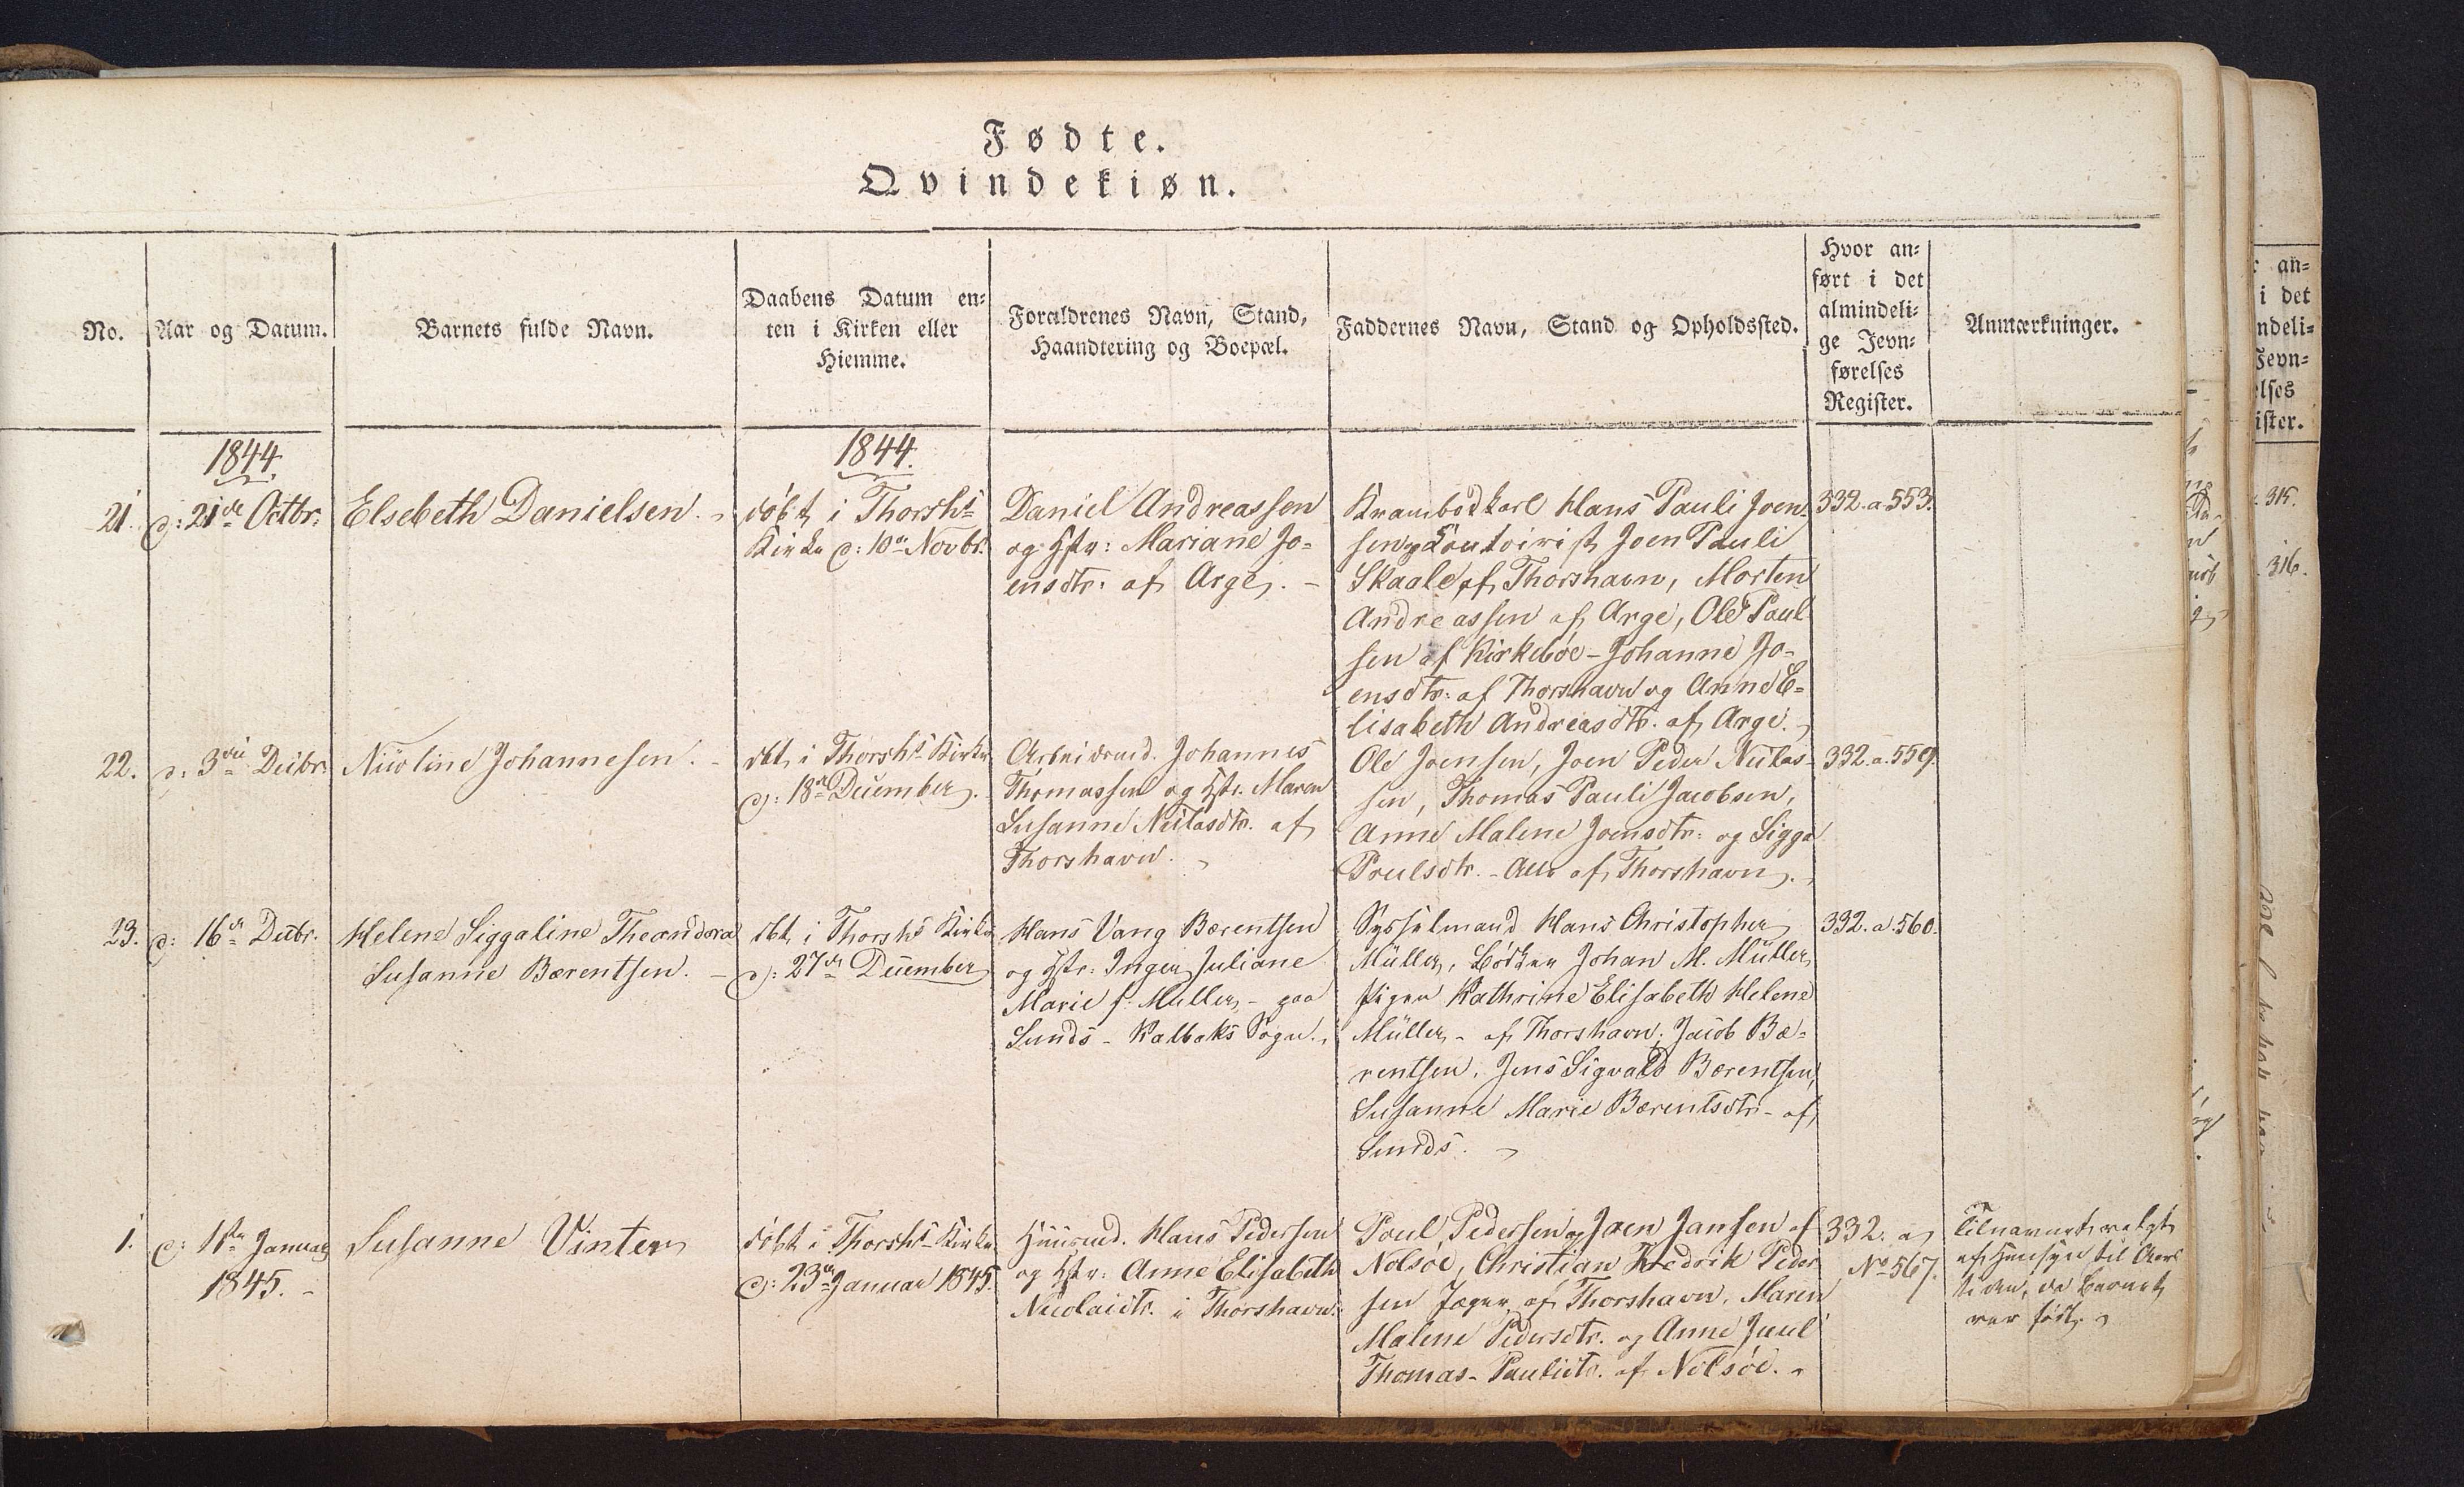 Fødte.
Qvindekiøn.
No.
Aar og Datum.
Barnets fulde Navn.
Daabens Datum en-
ten i Kirken eller
Hiemme.
Forældrenes Navn, Stand,
Haandtering og Boepæl.
Faddernes Navn, Stand og Opholdssted.
Hvor an-
ført i det
almindeli-
ge Jevn-
førelses
Register.
Anmærkninger.
1844.
1844.
21.
d: 21de Octbr:
Elsebeth Danielsen.
døbt i Thorsh:
Kirke d: 10de Novbr.
Daniel Andreassen
og Hstr: Mariane Jo-
ensdtr: af Arge.
Krambodkarl Hans Pauli Joen-
sen og Contoirist Joen Pauli
Skaale af Thorshavn, Morten
Andreassen af Arge, Ole Paul-
sen af Kirkebøe - Johanne Jo-
ensdtr: af Thorshavn og Anne E-
lisabeth Andreasdtr. af Arge.
332. a 553.
22.
d: 3die Decbr:
Nicoline Johannesen.
dbt. i Thorshs Kirke
d: 18de December.
Arbeidsmd. Johannes
Thomassen og Hstr. Maren
Susanne Neilasdtr. af
Thorshavn.
Ole Joensen, Joen Peder Neilas-
sen, Thomas Pauli Jacobsen,
Anne Malene Joensdtr: og Sigga
Poulsdtr. - Alle af Thorshavn.
332. a. 559.
23.
d: 16de Decbr.
Helene Siggaline Theandora
Susanne Bærentsen.
dbt. i Thorshs Kirke
d: 27de December
Hans Vang Bærentsen
og Hstr: Inger Juliane
Marie f. Müller, - paa
Sunds - Kalbaks Sogn.
Sysselmand Hans Christopher
Müller, Bødker Johan M. Müller,
Pigen Kathrine Elisabeth Helene
Müller - af Thorshavn; Jacob Bæ-
rentsen, Jens Sigvald Bærentsen,
Susanne Marie Bærentsdtr - af
Sunds.
332. a. 560.
1.
d: 1ste Januar
1845. -
Susanne Vinter
døbt i Thorshs Kirke
d: 23de Januar 1845.
Huusmd. Hans Pedersen
og Hstr: Anne Elisabeth
Nicolaidtr. i Thorshavn.
Poul Pedersen og Joen Jansen af
Nolsøe, Christian Fredrik Peder-
sen Jæger af Thorshavn, Maren
Malene Pedersdtr. og Anne Juul
Thomas-Paulidtr. af Nolsøe.
332. a
No 567.
Tilnavnet valgt
af Hensyn til Aars-
tiden, da Barnet
var født.
an-
i det
ndeli-
Jevn-
elses
ister.
315.
316.